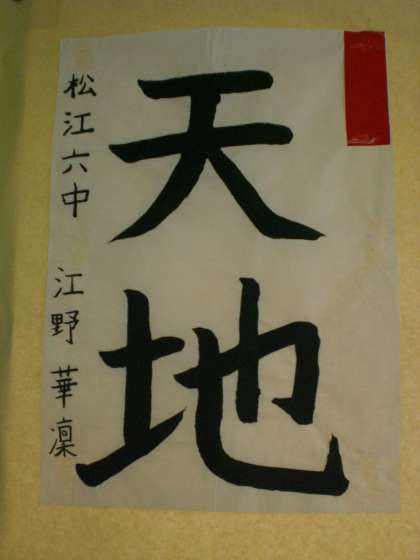 天地
松江六中 江野華凜